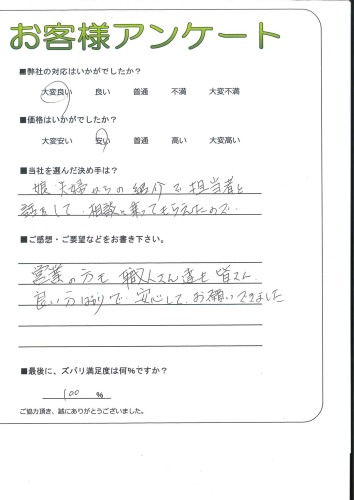 お客様アンケート
■弊社の対応はいかがでしたか？
大変良い 良い 普通 不満 大変不満
■価格はいかがでしたか？
大変安い 安い 普通 高い 大変高い
■当社を選んだ決め手は？
娘夫婦からの紹介で担当者と
話をして、相談に乗ってもらえたので
■ご感想・ご要望などをお書き下さい。
営業の方も職人さん達も皆さん
良い方ばかりで安心してお願いできました
■最後に、ズバリ満足度は何％ですか？
100 %
ご協力頂き、誠にありがとうございました。